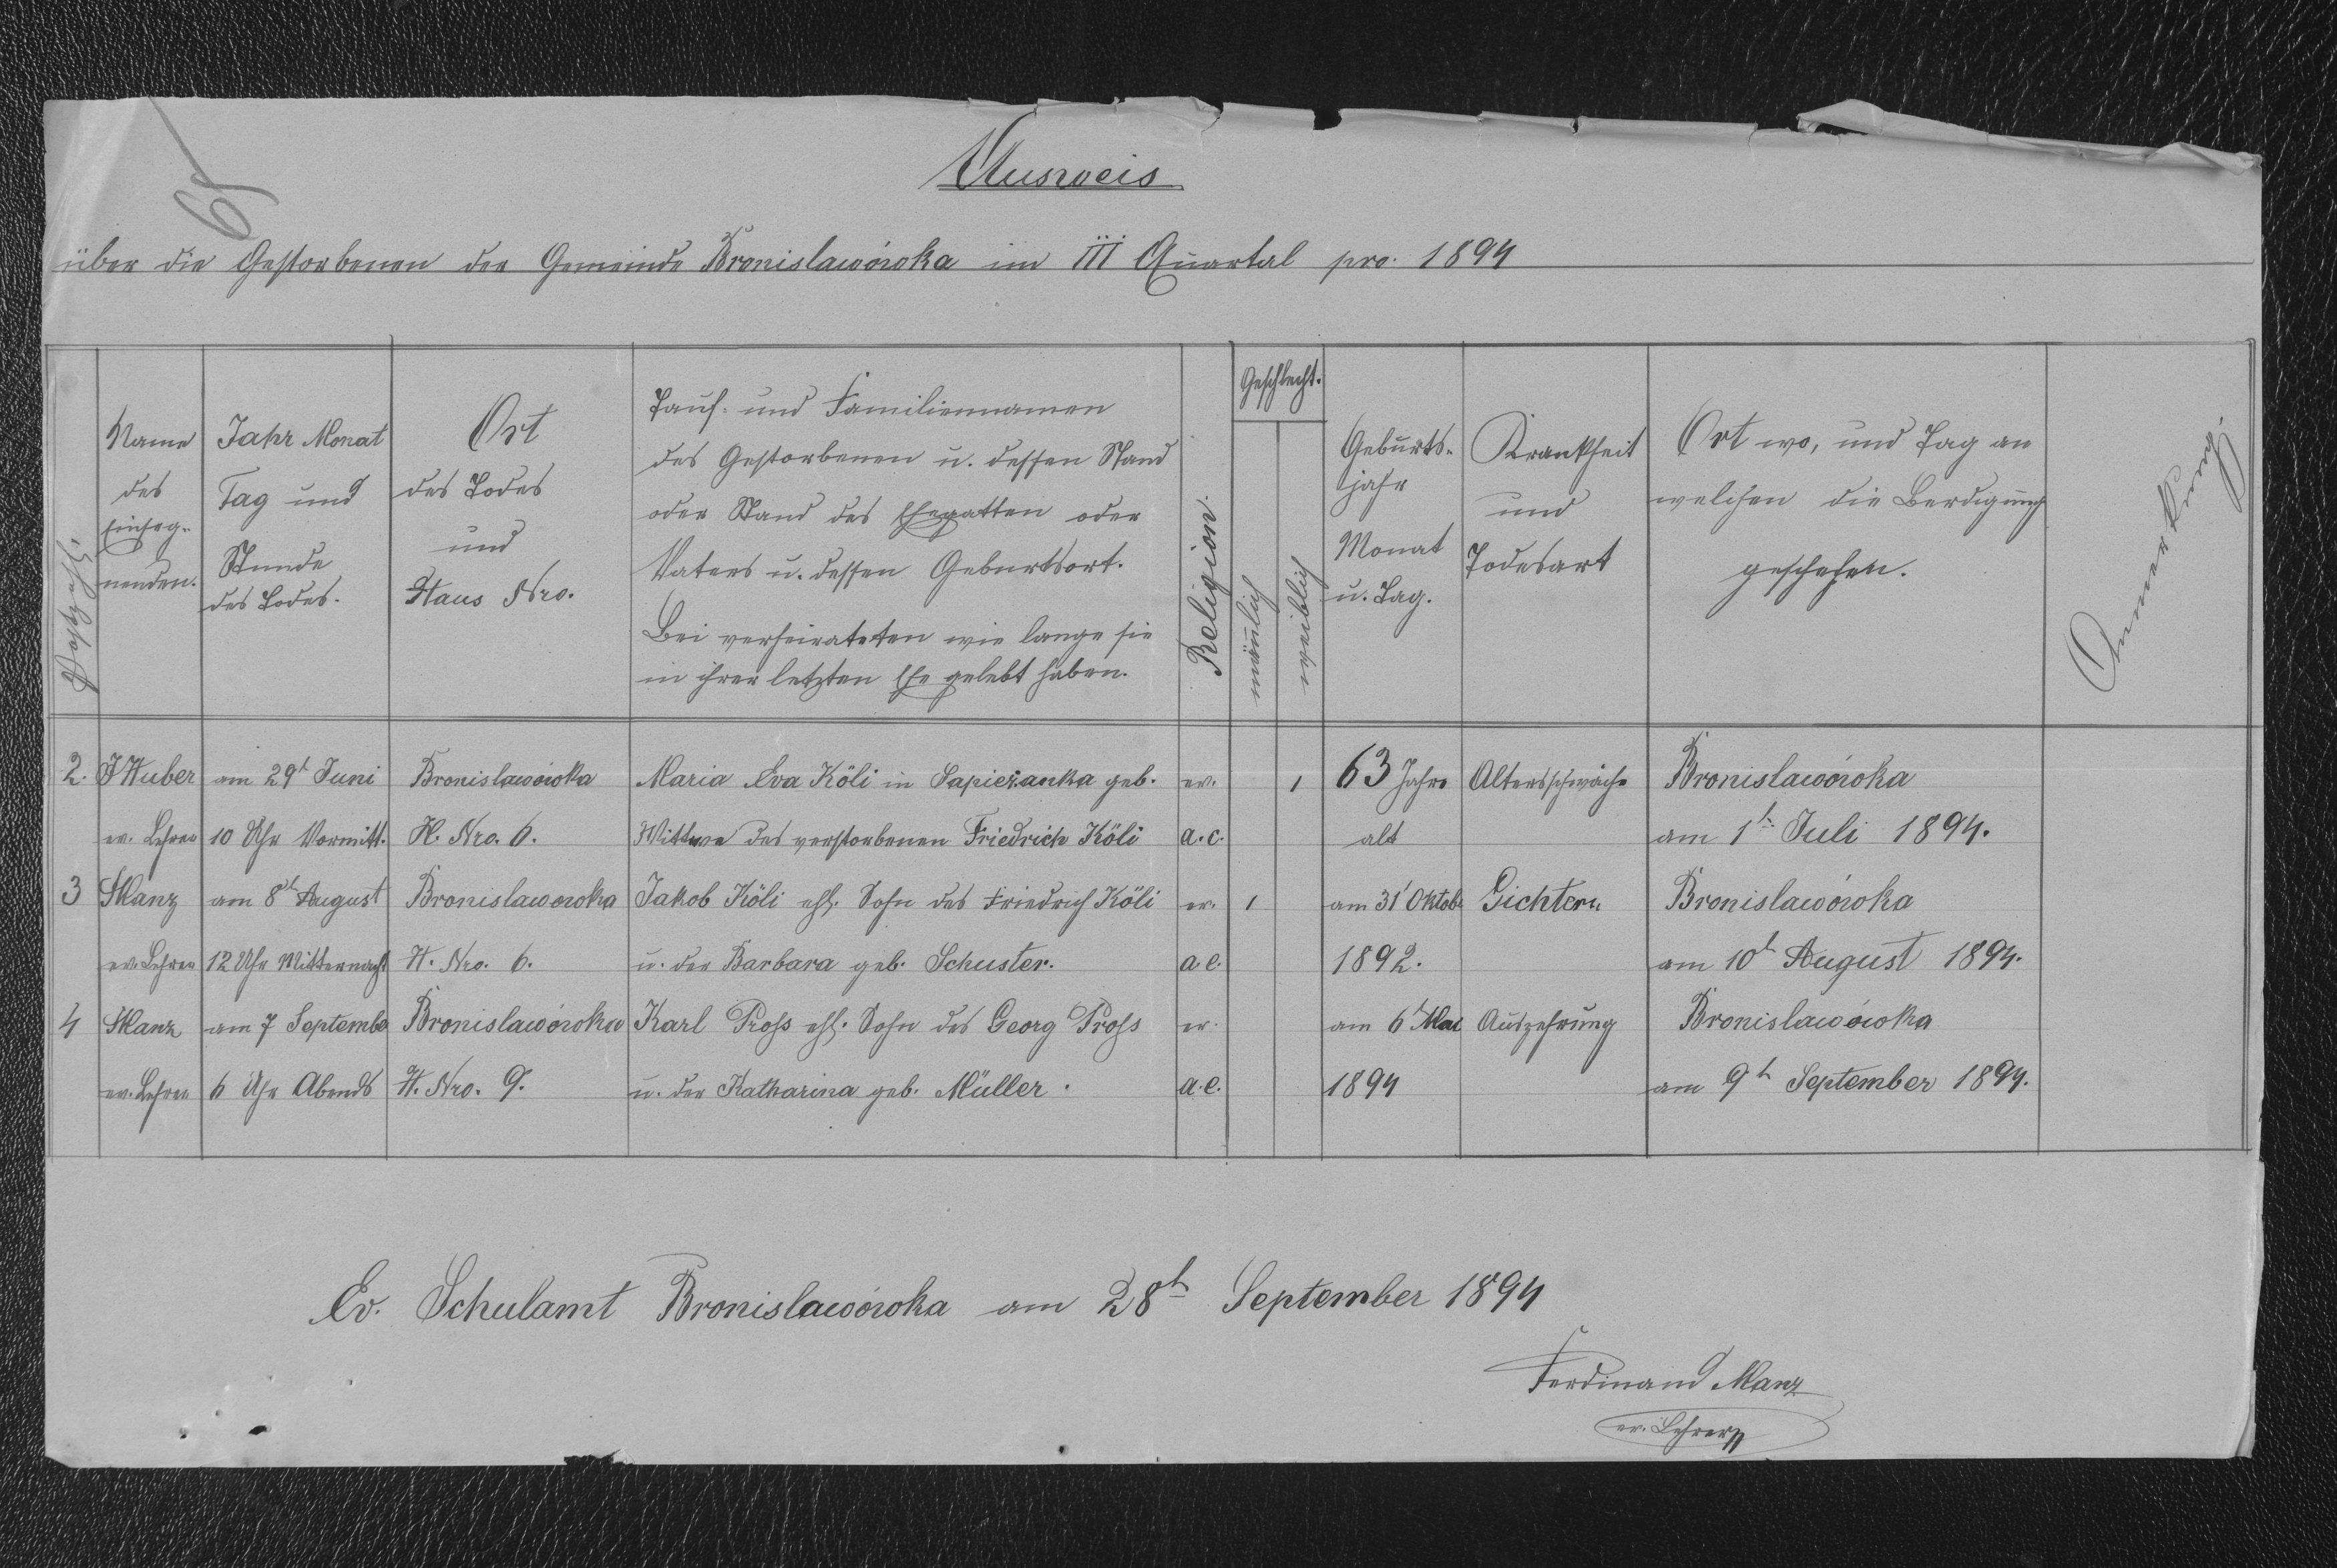 6
Ausweis
über die Gestorbenen der Gemeinde Bronislawówka im III Quartal pro. 1894
Postzahl.
Name
des
Einseg-
nenden.
Jahr Monat
Tag und
Stunde
des Todes.
Ort
des Todes
und
Haus Nro.
Tauf- und Familiennamen
des Gestorbenen u. dessen Stand
oder Stand des Ehegatten oder
Vaters u. dessen Geburtsort.
Bei verheirateten wie lange sie
in ihrer letzten Ehe gelebt haben.
Religion.
Geschlecht.
mänlich
weiblich
Geburts-
jahr
Monat
u. Tag.
Krankheit
und
Todesart
Ort wo, und Tag an
welchen die Berdigung
geschehen.
Anmerkung.
2. J Huber am 29t Juni Bronislawówka Maria Eva Köli in Sapieżanka geb. ev. 1 63 Jahre Altersschwäche Bronislawówka
ev. Lehrer 10 Uhr Vormitt. H. Nro. 6. Wittwe des verstorbenen Friedrich Köli a. c. alt am 1t Juli 1894.
3 Manz am 8t August Bronislawowka Jakob Köli ehl. Sohn des Friedrich Köli ev. 1 am 31t Oktob. Gichtern Bronislawówka
ev. Lehrer 12 Uhr Mitternacht H. Nro. 6. u. der Barbara geb. Schuster. a c. 1892. am 10t August 1894.
4 Manz am 7 Septembe Bronislawówka Karl Pross ehl. Sohn des Georg Pross ev. am 6t Mai Auszehrung Bronislawówka
ev. Lehrer 6 Uhr Abends H. Nro. 9. u. der Katharina geb. Müller. a. c. 1894 am 9t September 1894.
Ev. Schulamt Bronislawówka am 28t September 1894
Ferdinand Manz
ev. Lehrer